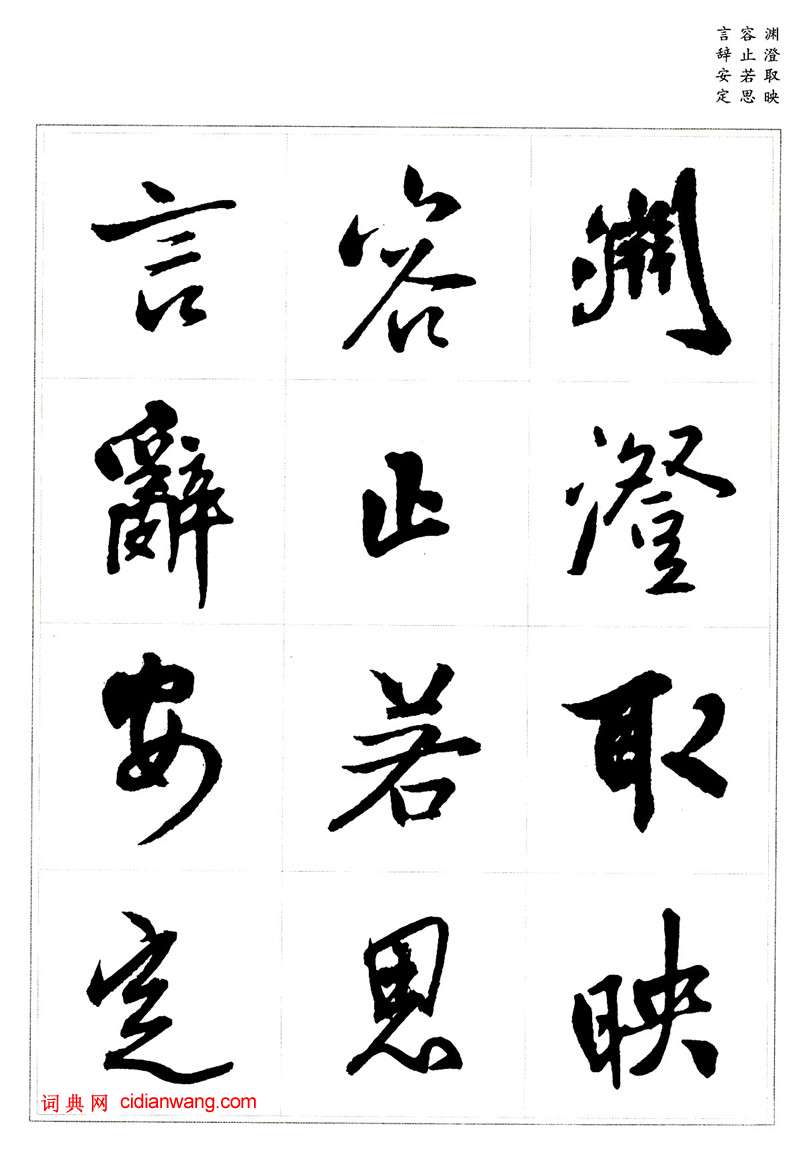 渊澄取映
容止若思
言辞安定
淵澄取映
容止若思
言辭安定
词典网 cidianwang.com